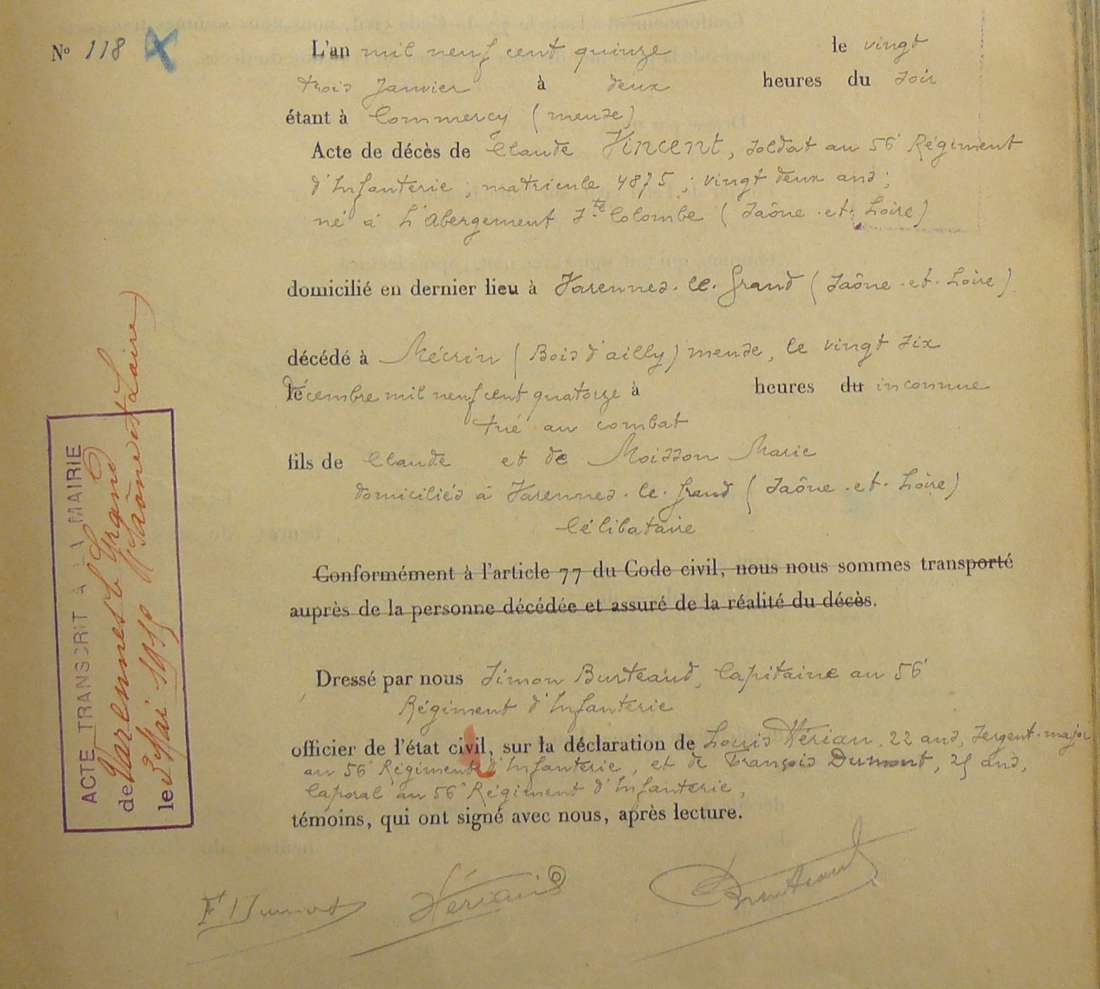 N° 118
L'an mil neuf cent quinze le vingt
trois Janvier à deux heures du soir
étant à Commercy (meuse)
Acte de décès de Claude Vincent, soldat au 56e Régiment
d'Infanterie ; matricule 4875 ; vingt deux ans ;
né à L'Abergement Ste Colombe (Saône-et-Loire)
domicilié en dernier lieu à Varennes-le-Grand (Saône-et-Loire)
décédé à Mécrin (Bois d'ailly) meuse, le vingt six
décembre mil neuf cent quatorze à heures du inconnue
tué au combat
fils de Claude et de Moisson Marie
domiciliés à Varennes-le-Grand (Saône-et-Loire)
Célibataire
Conformément à l'article 77 du Code civil, nous nous sommes transporté
auprès de la personne décédée et assuré de la réalité du décès.
Dressé par nous Simon Burteaud, Capitaine au 56e
Régiment d'Infanterie
officier de l'état civil, sur la déclaration de Louis Vérian, 22 ans, Sergent-major
au 56e Régiment d'Infanterie, et de François Dumont, 25 ans,
Caporal au 56e Régiment d'Infanterie,
témoins, qui ont signé avec nous, après lecture.
F. Dumont Vérian Burteaud
ACTE TRANSCRIT À LA MAIRIE
de Varennes le Grand
(Saône et Loire)
le 2 Mai 1915